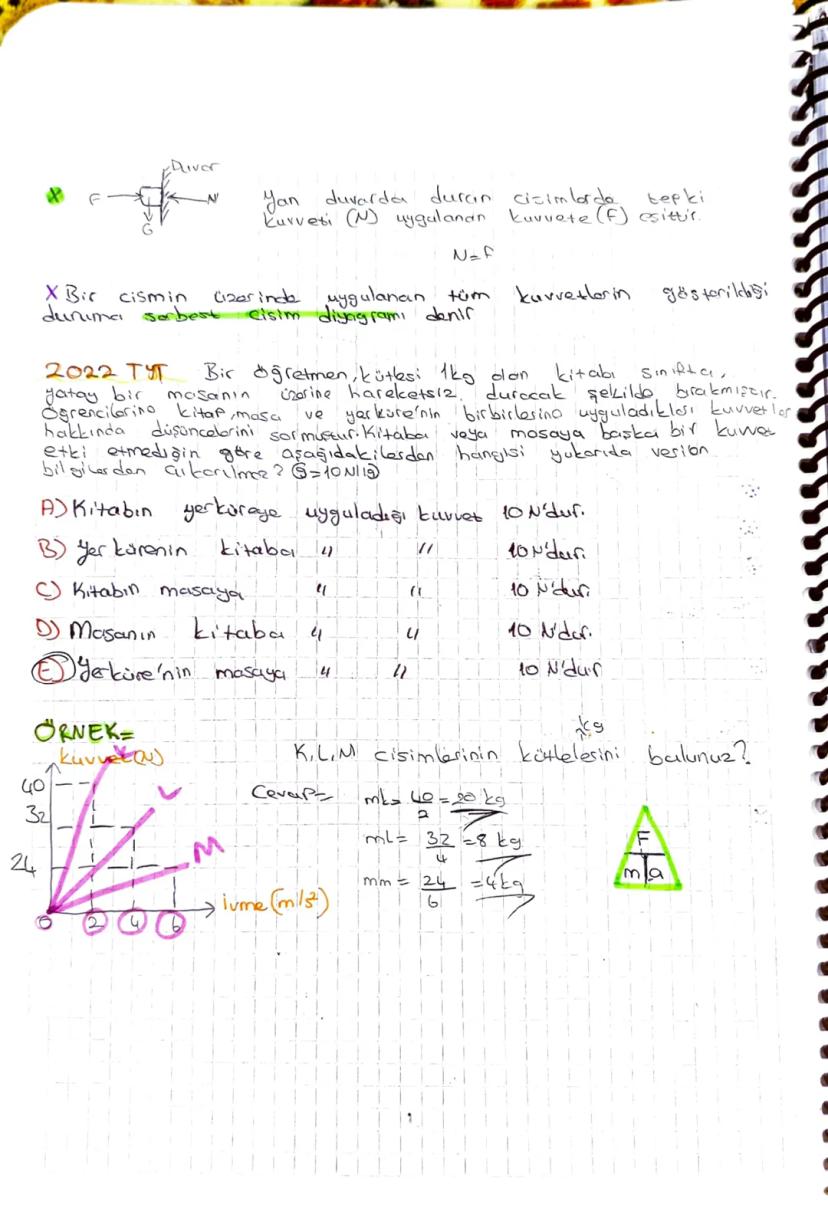 Duvar
X F N
G
Yan duvarda duran cizimlerde tepki
kuvveti (N) uygulanan kuvvete (F) esittir.
N=F
X Bir cismin üzerinde uygulanan tüm kuvvetlerin gösterildiği
duruma serbest cisim diyagramı denir
2022 TYT Bir öğretmen, kütlesi 1kg olan kitabı sınıfta,
yatay bir masanın üzerine hareketsiz duracak şekilde bırakmıştır.
Öğrencilerine kitap, masa ve yerküre'nin birbirlerine uyguladıkları kuvvetler
hakkında düşüncelerini sormuştur. Kitaba veya masaya başka bir kuvvet
etki etmediğin göre aşağıdakilerden hangisi yukarıda verilen
bilgilerden çıkarılmaz? (g=10N/kg)
A) Kitabın yerküreye uyguladığı kuvvet 10 N'dur.
B) Yer kürenin kitaba " " 10 N'dur.
C) Kitabın masaya " " 10 N'dur.
D) Masanın kitaba " " 10 N'dur.
E) Yerküre'nin masaya " " 10 N'dur
ÖRNEK=
kg
K, L, M cisimlerinin kütlelesini bulunuz?
kuvvet(N)
K
40
L
32
M
24
0 2 4 6
İvme (m/s²)
Cevap=
mk= 40/2 = 20 kg
mL= 32/4 = 8 kg
mm= 24/6 = 4kg
F
m a